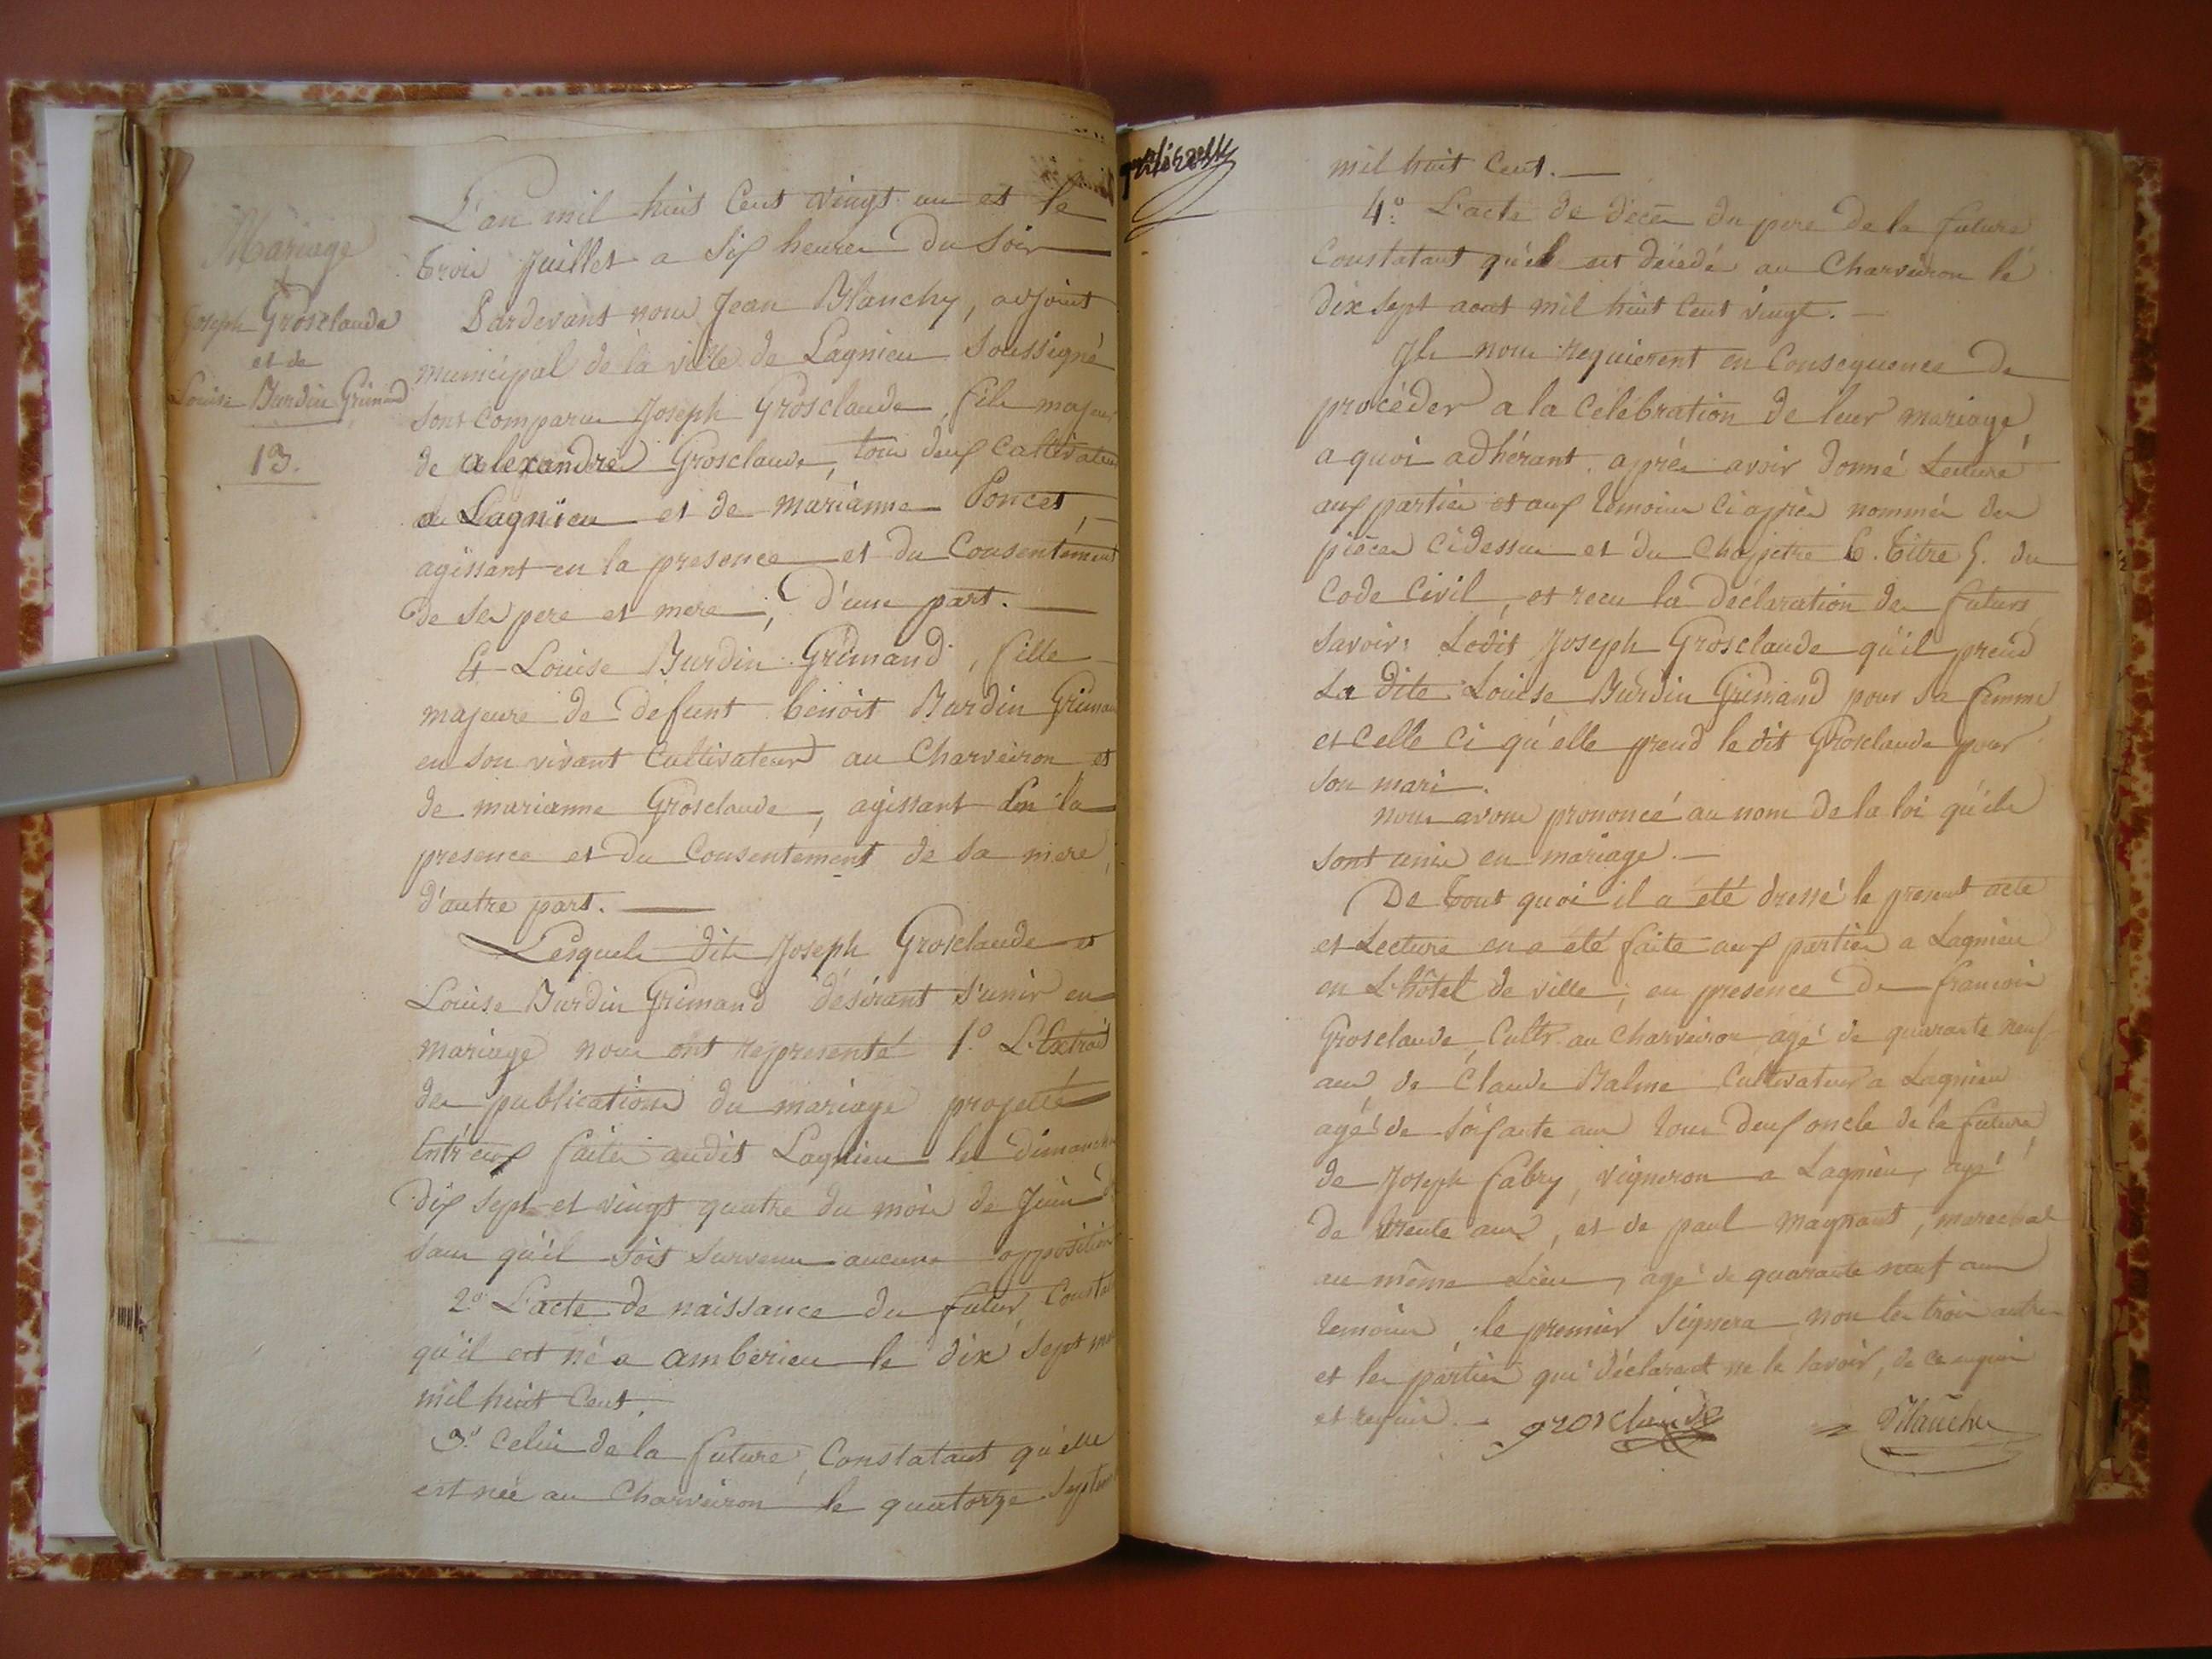 Mariage
Joseph Grosclaude
et de
Louise Burdin Grimand
13.
L'an mil huit Cent vingt un et le
trois Juillet a six heures du Soir
Pardevant nous Jean Blanchy, adjoint
municipal de la ville de Lagnieu Soussigné
sont comparus Joseph Grosclaude, fils majeur
de alexandre Grosclaude, tous deux Cultivateurs
a Lagnieu et de marianne Poncet,
agissant en la presence et du Consentement
de ses pere et mere, d'une part.
Et Louise Burdin Grimand, fille
majeure de defunt benoit Burdin Grimand
en son vivant Cultivateur au Charveiron et
de marianne Grosclaude, agissant En la
presence et du Consentement de sa mere,
d'autre part.
Lesquels dits Joseph Grosclaude et
Louise Burdin Grimand désirant s'unir en
mariage nous ont représenté 1.° L'Extrait
des publications du mariage projetté
Entr'eux faites audit Lagnieu les dimanches
dix sept et vingt quatre du mois de Juin
sans qu'il soit survenu aucune opposition
2.° L'acte de naissance du futur, Constatant
qu'il est né a amberieu le dix sept
mil huit Cent.
3.° Celui de la future, Constatant qu'elle
est née au Charveiron le quatorze Septembre
mil huit Cent.
4.° L'acte de décès du pere de la future
Constatant qu'il est décédé au Charveiron le
dix sept aout mil huit Cent vingt.
Ils nous requierent en Consequence de
procéder a la Celebration de leur mariage
a quoi adhérant, après avoir donné Lecture
aux parties et aux temoins Ci après nommés des
pièces Cidessus et du Chapitre 6. titre 5. du
Code Civil, et recu la déclaration des futurs
Savoir: Ledit Joseph Grosclaude qu'il prend
La dite Louise Burdin Grimand pour sa femme
et Celle Ci qu'elle prend le dit Grosclaude pour
son mari.
nous avons prononcé au nom de la loi qu'ils
sont unis en mariage.
De tout quoi il a été dressé le present acte
et Lecture en a été faite aux parties a Lagnieu
en L'hôtel de ville, en presence de francois
Grosclaude, Cultr. au Charveiron agé de quarante neuf
ans, de Claude Balme Cultivateur a Lagnieu
agé de soixante ans tous deux oncle de la future
de Joseph Fabry, vigneron a Lagnieu, agé
de trente ans, et de paul magnant, marechal
au même Lieu, agé de quarante neuf ans
temoins, le premier signera non les trois autres
et les parties qui déclarent ne le savoir, de ce enquis
et requis.
grosclaude
Blanchy